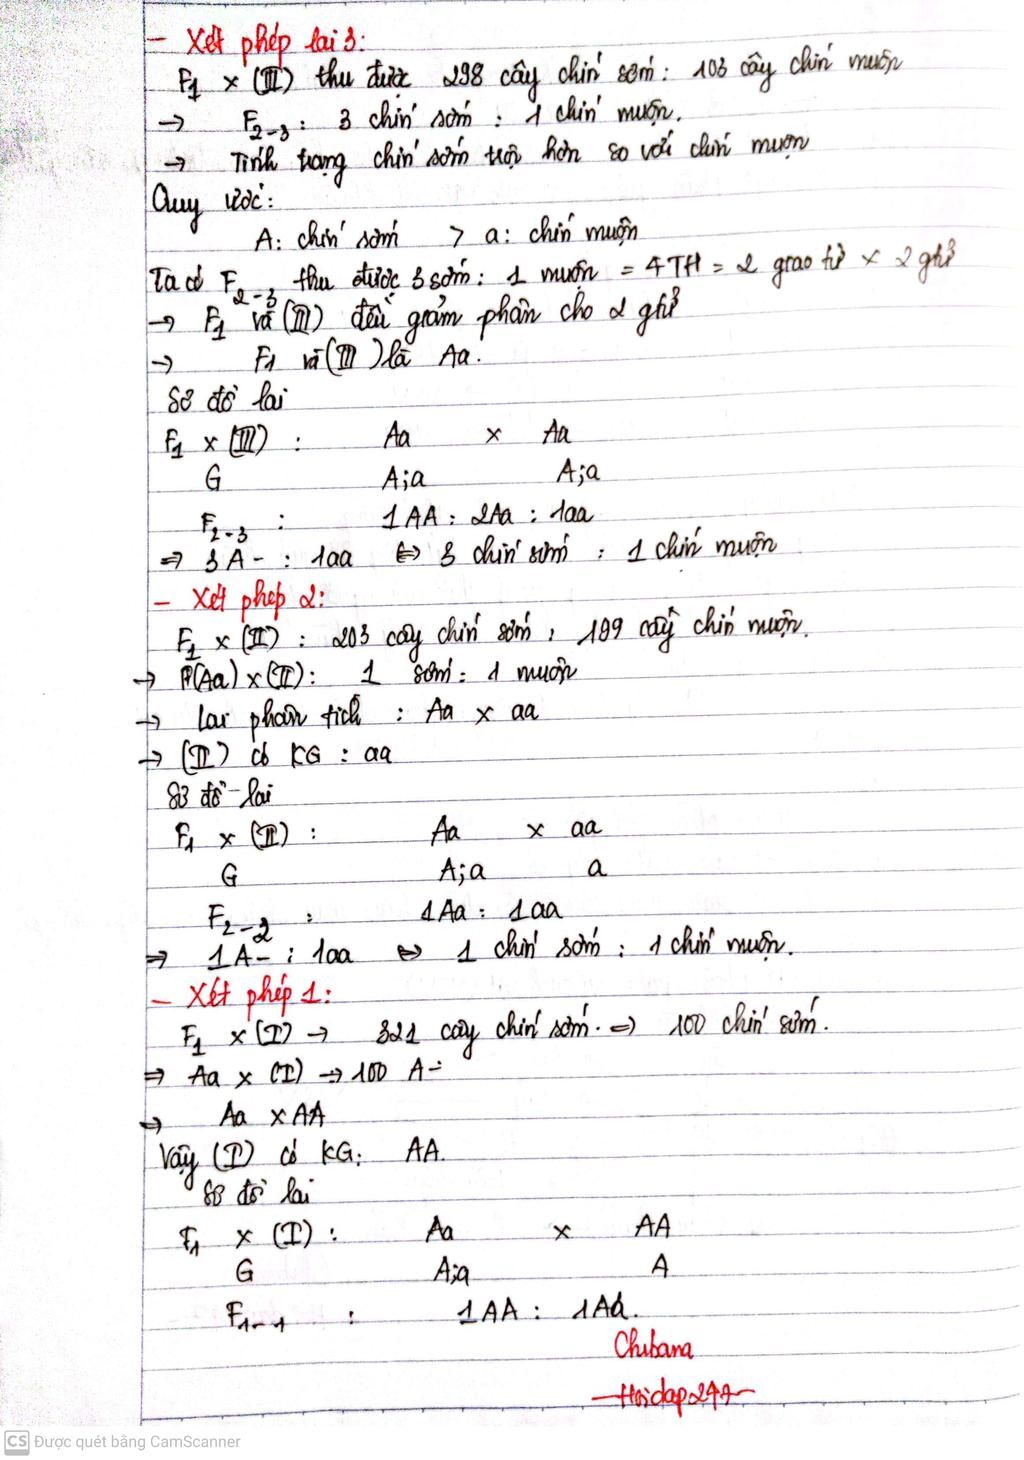 - Xét phép lai 3:
F1 x (III) thu được 298 cây chín sớm : 103 cây chín muộn
→ F2-3 : 3 chín sớm : 1 chín muộn.
→ Tính trạng chín sớm trội hơn so với chín muộn
Quy ước:
A: chín sớm > a: chín muộn
Ta có F2-3 thu được 3 sớm : 1 muộn = 4TH = 2 giao tử x 2 gtử
→ F1 và (III) đều giảm phân cho 2 gtử
→ F1 và (III) là Aa.
Sơ đồ lai
F1 x (III) : Aa x Aa
G A;a A;a
F2-3 : 1AA : 2Aa : 1aa
⇒ 3A- : 1aa ⇔ 3 chín sớm : 1 chín muộn
- Xét phép 2:
F1 x (II) : 203 cây chín sớm , 199 cây chín muộn.
→ F1(Aa) x (II) : 1 sớm : 1 muộn
→ Lai phân tích : Aa x aa
→ (II) có KG : aa
Sơ đồ lai
F1 x (II) : Aa x aa
G A;a a
F2-2 : 1Aa : 1aa
⇒ 1A- : 1aa ⇔ 1 chín sớm : 1 chín muộn.
- Xét phép 1:
F1 x (I) → 321 cây chín sớm. ⇒ 100 chín sớm.
⇒ Aa x (I) → 100 A-
⇒ Aa x AA
Vậy (I) có KG: AA.
Sơ đồ lai
F1 x (I) : Aa x AA
G A;a A
F1-1 : 1AA : 1Aa.
Chibana
-Hoidap247-
CS Được quét bằng CamScanner